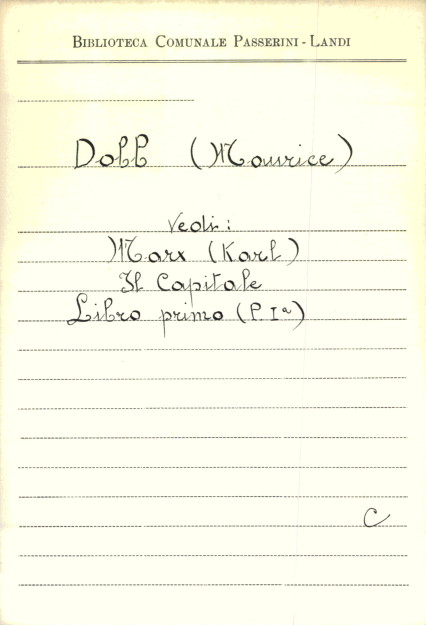 BIBLIOTECA COMUNALE PASSERINI - LANDI
Dobb (Maurice)
Vedi:
Marx (Karl)
Il Capitale
Libro primo (P. Iª)
C